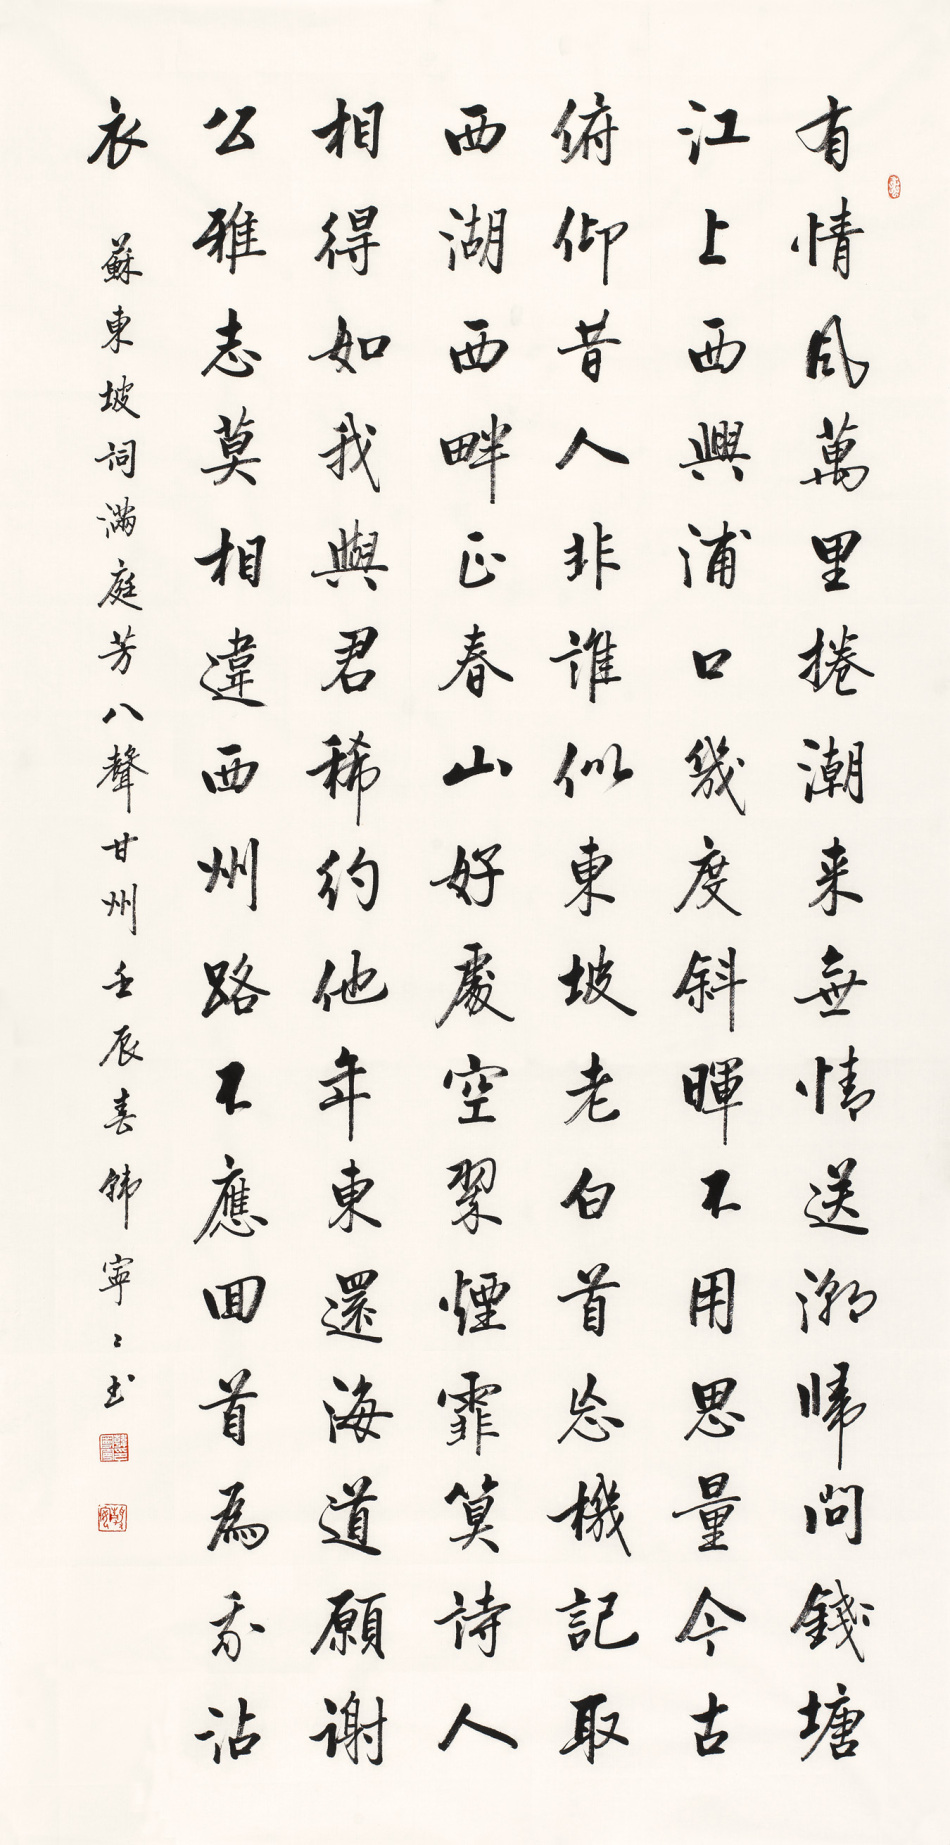 有情風萬里捲潮来無情送潮歸問錢塘
江上西興浦口幾度斜暉不用思量今古
俯仰昔人非誰似東坡老白首忘機記取
西湖西畔正春山好處空翠煙霏算詩人
相得如我與君稀約他年東還海道願謝
公雅志莫相違西州路不應回首為我沾
衣 蘇東坡詞滿庭芳八聲甘州壬辰春韓寧〻书